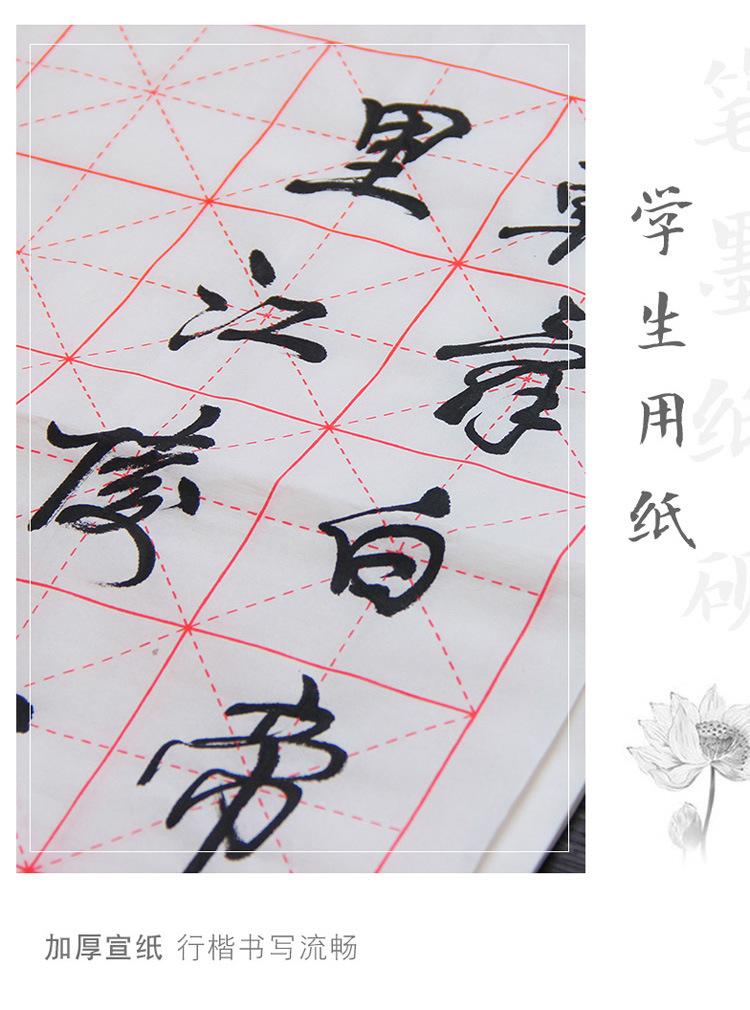 笔墨纸砚
学生用纸
辞白帝
里江陵
加厚宣纸 行楷书写流畅